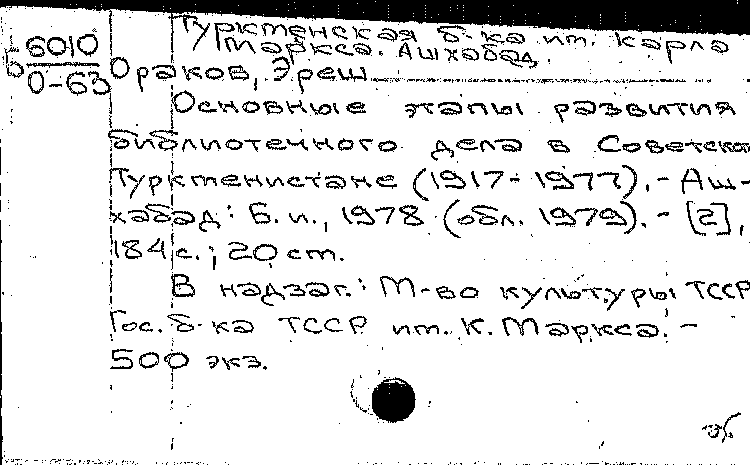 Туркменская б-ка им. Карла
Маркса. Ашхабад.
Б 6010
О-63
Ораков, Эреш
Основные этапы развития
библиотечного дела в Советском
Туркменистане (1917-1977). - Аш-
хабад: Б. и., 1978 (обл. 1979). - [2],
184 с.; 20 см.
В надзаг.: М-во культуры ТССР
Гос. б-ка ТССР им. К. Маркса. -
500 экз.